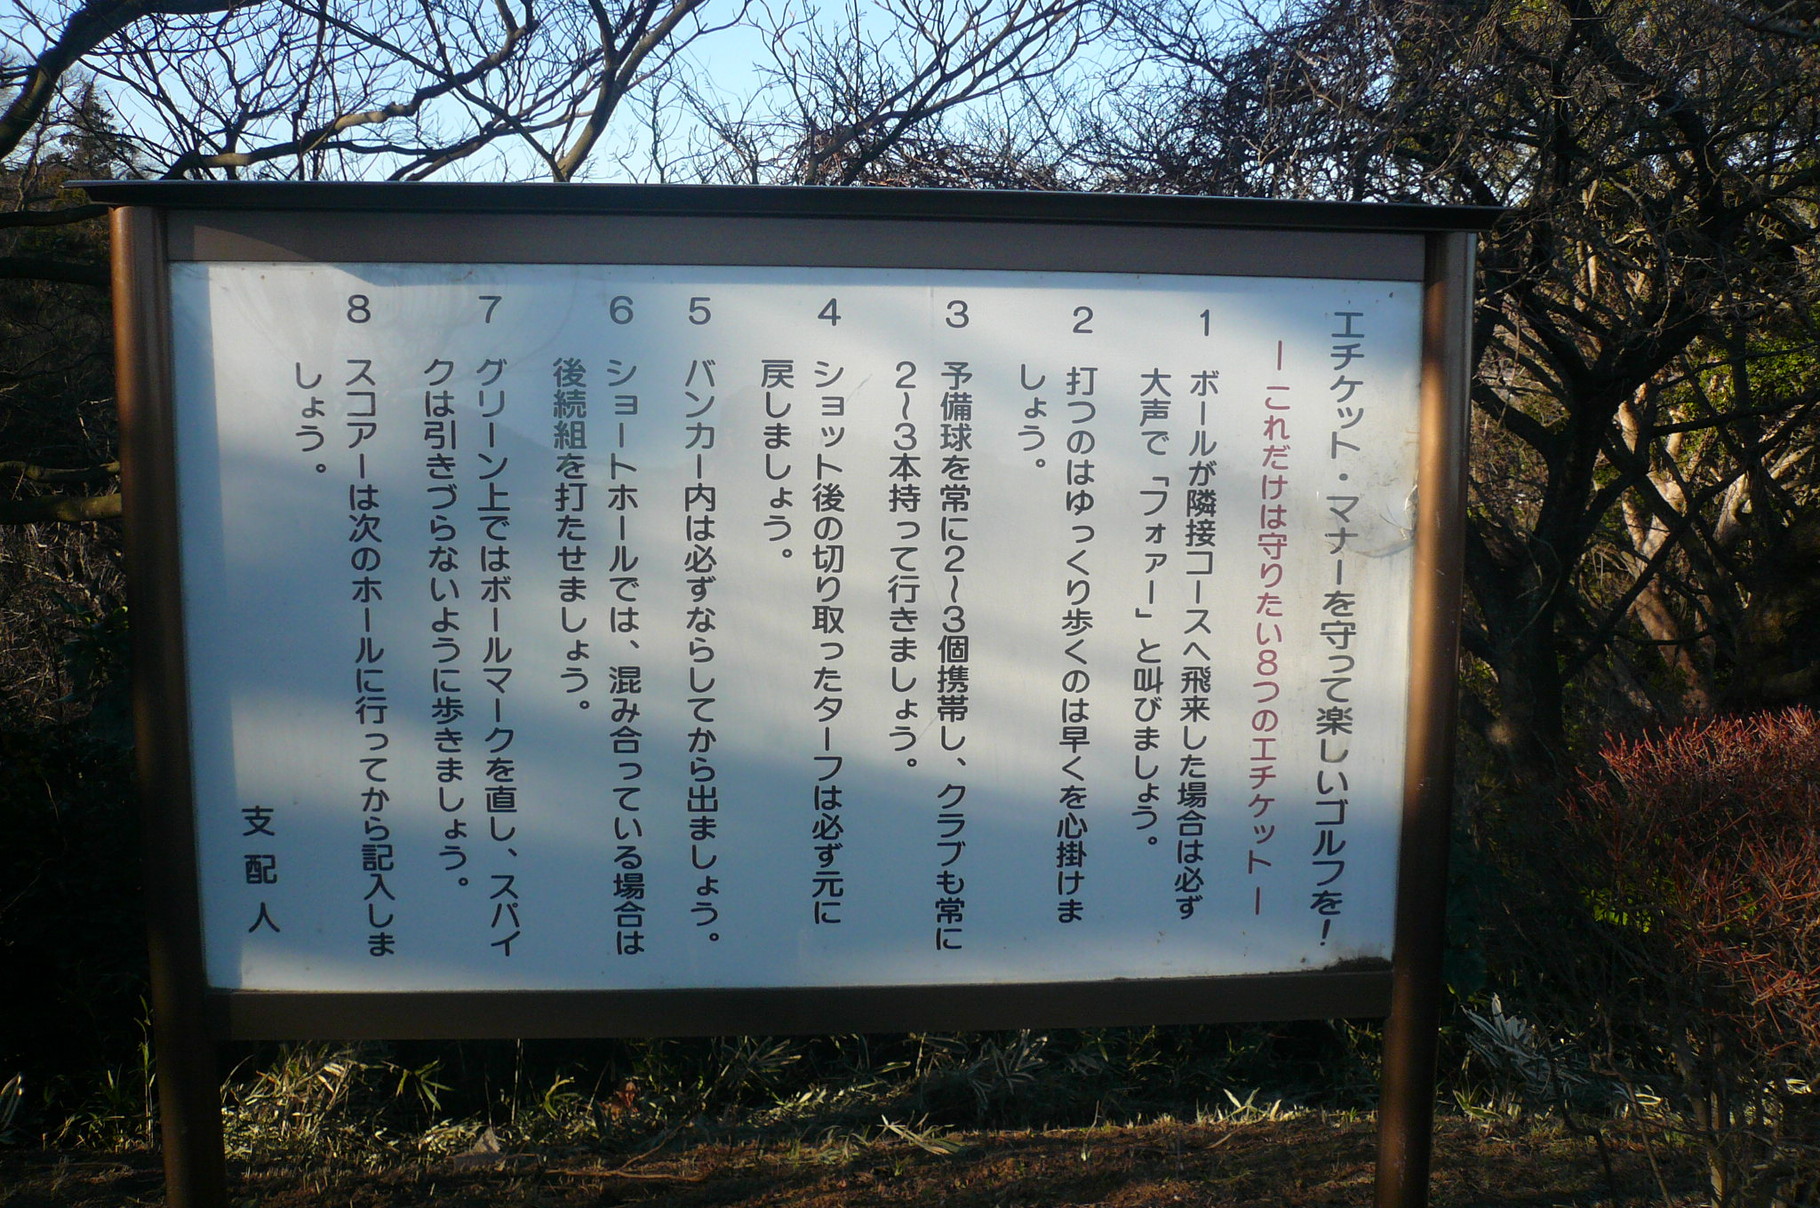 エチケット・マナーを守って楽しいゴルフを!
ーこれだけは守りたい8つのエチケットー
1 ボールが隣接コースへ飛来した場合は必ず
大声で「フォアー」と叫びましょう。
2 打つのはゆっくり歩くのは早くを心掛けま
しょう。
3 予備球を常に2〜3個携帯し、クラブも常に
2〜3本持って行きましょう。
4 ショット後の切り取ったターフは必ず元に
戻しましょう。
5 バンカー内は必ずならしてから出ましょう。
6 ショートホールでは、混み合っている場合は
後続組を打たせましょう。
7 グリーン上ではボールマークを直し、スパイ
クは引きづらないように歩きましょう。
8 スコアーは次のホールに行ってから記入しま
しょう。
支配人